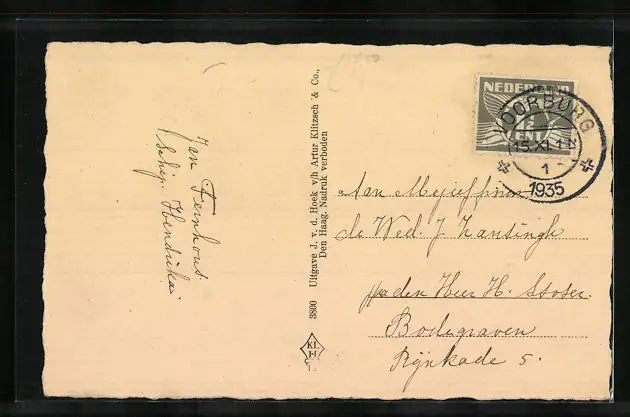 Jan Fernhout
Schip. Hendrika
3800 Uitgave J. v. d. Hoek v/h Artur Klitzsch & Co.,
Den Haag. Nadruk verboden
KL
H
NEDERLAND
CENT
VOORBURG
15.XI.1
1
1935
Aan Mejuffrouw
de Wed. J. Zantingh
pa den Heer H. Stoser.
Bodegraven
Rijnkade 5.